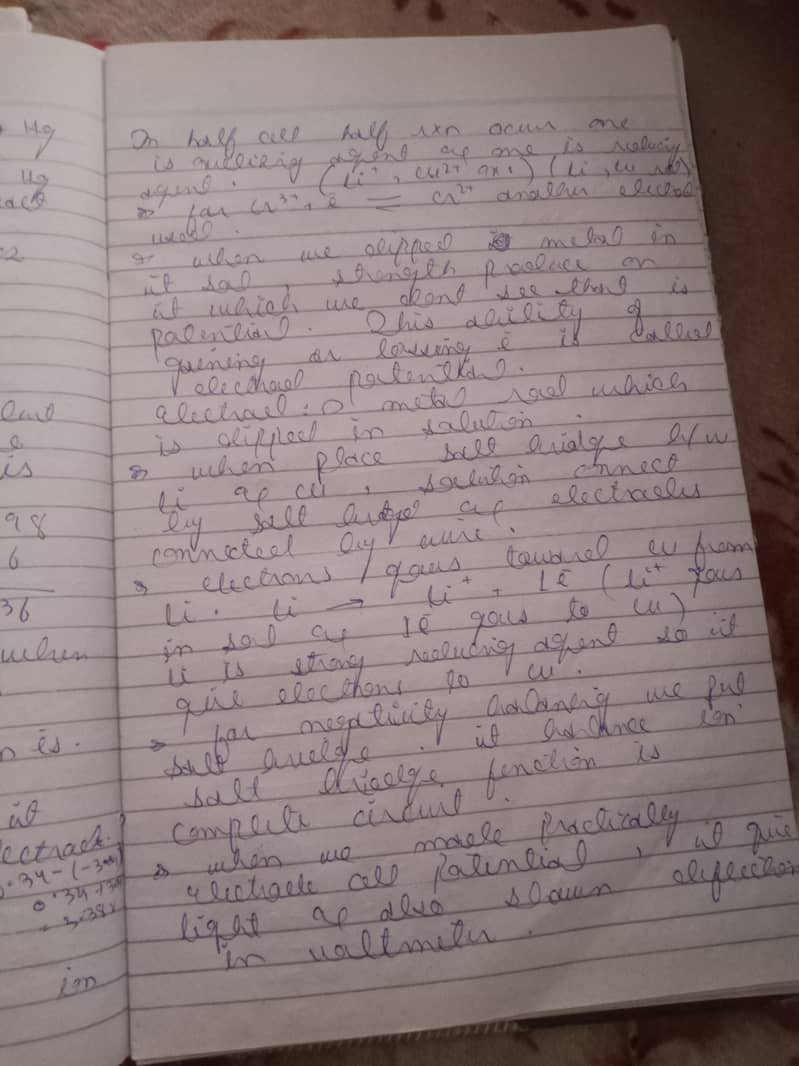 Hg
Hg
2
is
98
6
36
when
n is.
it
ectrode.
0.34-(-3
0.34+3
= 3.38
ion
In half cell half rxn occur one
is oxidizing agent of one is reducing
agent. (Li+, Cu2+ oxi) (Li, Cu
for Cr3+, e = Cr2+ another electrod
used.
when we dipped metal in
it sol, strength produce on
it which we dont see that is
potential. This ability of
gaining or lossing e is called
electrod potential.
electrod: metal rod which
is dipped in solution.
when place salt bridge b/w
Li of Cu, solution connect
by salt bridge of electrodes
connected by wire.
electrons goes toward Cu from
Li. Li → Li+ + 1e (Li+ goes
in sol of 1e goes to Cu)
Li is strong reducing agent so it
give electrons to Cu.
for negativity balancing we put
salt bridge. it balance ion
salt bridge function is
complete circuit.
when we made practically
electrode cell potential, it give
light of also shown deflection
in voltmeter.